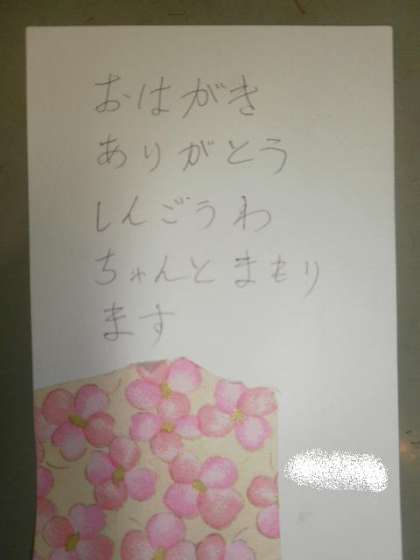 おはがき
ありがとう
しんごうわ
ちゃんとまもり
ます